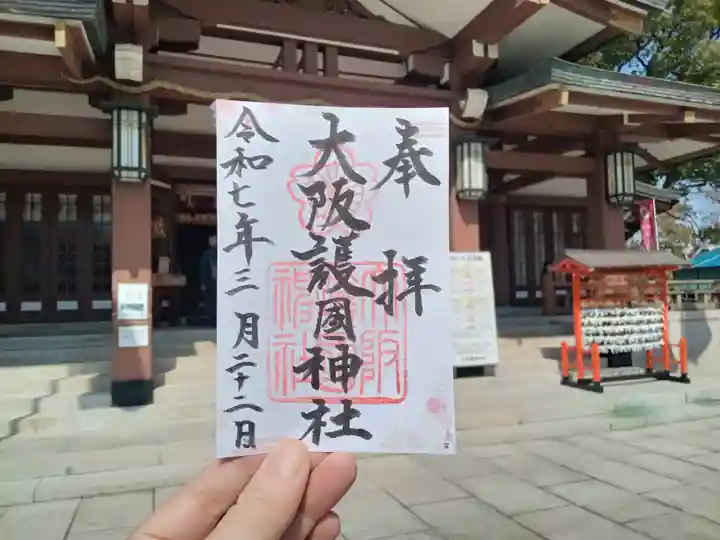 奉拝
大阪護國神社
令和七年三月二十二日